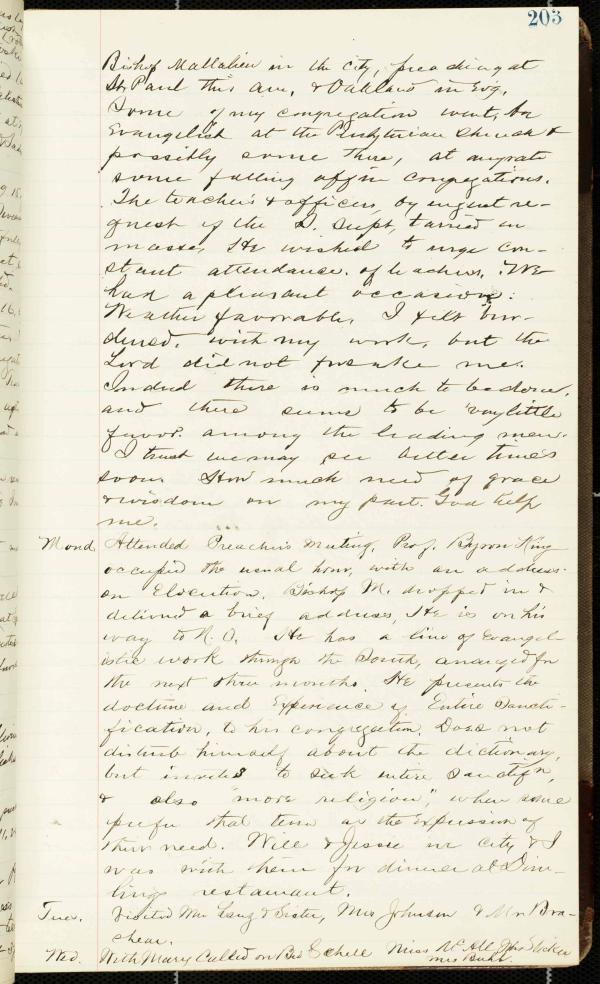 203
Bishop Mallalieu in the city, preaching at
St Paul this am, & Oakland in Evg.
Some of my congregation went, an
Evangelist at the Presbyterian Church &
possibly some there, at any rate
some falling off in congregations.
The teachers & officers, by urgent re-
quest of the S. Supt, tarried en
masse, He wished to urge con-
stant attendance. of teachers. We
had a pleasant occasion.
Weather favorable, I felt bur-
dened, with my work, but the
Lord did not forsake me.
Indeed there is much to be done,
and there seems to be very little
favor among the leading men.
I trust we may see better times
soon How much need of grace
& wisdom on my part. God help
me.
Mond. Attended Preachers Meeting, Prof. Byron King
occupied the usual hour, with an address
on Elocution. Bishop M. dropped in &
delivered a brief address, He is on his
way to N. O. He has a line of Evangel-
istic work through the South, arranged for
the next three months. He presents the
doctrine and Experience of Entire Sancti-
fication, to his congregation. Does not
disturb himself about the dictionary,
but invites to seek entire Sanctifn,
& also "more religion", when some
prefer that term as the expression of
their need. Will & Jessie in city & I
was with them for dinner at Dim-
ling restaurant.
Tue. Visited Wm Lang & Sister, Mrs Johnson & Mr Bra-
shear.
Wed. With Mary Called on Bro Schell Miss Mc All
Mrs Buhl